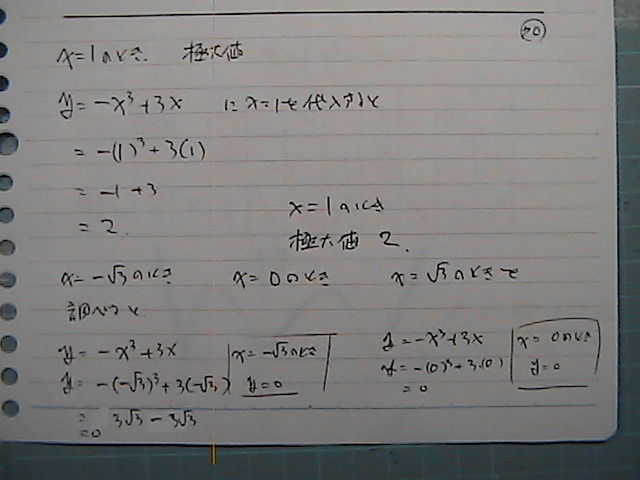 20
x=1のとき. 極大値
y = -x³+3x に x=1を代入すると
= -(1)³+3(1)
= -1+3
= 2.
x=1のとき
極大値 2.
x=-√3のとき x=0のとき x=√3のときで
調べると
y = -x³+3x
y = -(-√3)³+3(-√3)
= 3√3-3√3
=0
x=-√3のとき
y=0
y = -x³+3x
y = -(0)³+3·(0)
= 0
x=0のとき
y=0